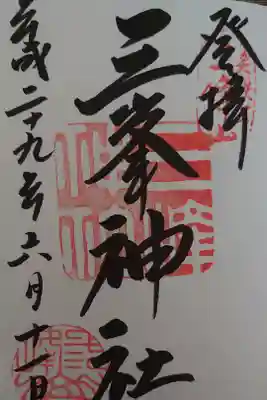 登拝
三峯神社
平成二十九年六月十一日